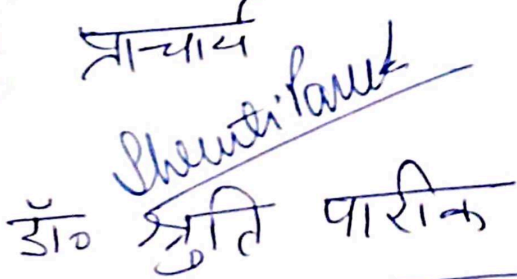 प्राचार्य
Shruti Pareek
डॉ० श्रुति पारीक